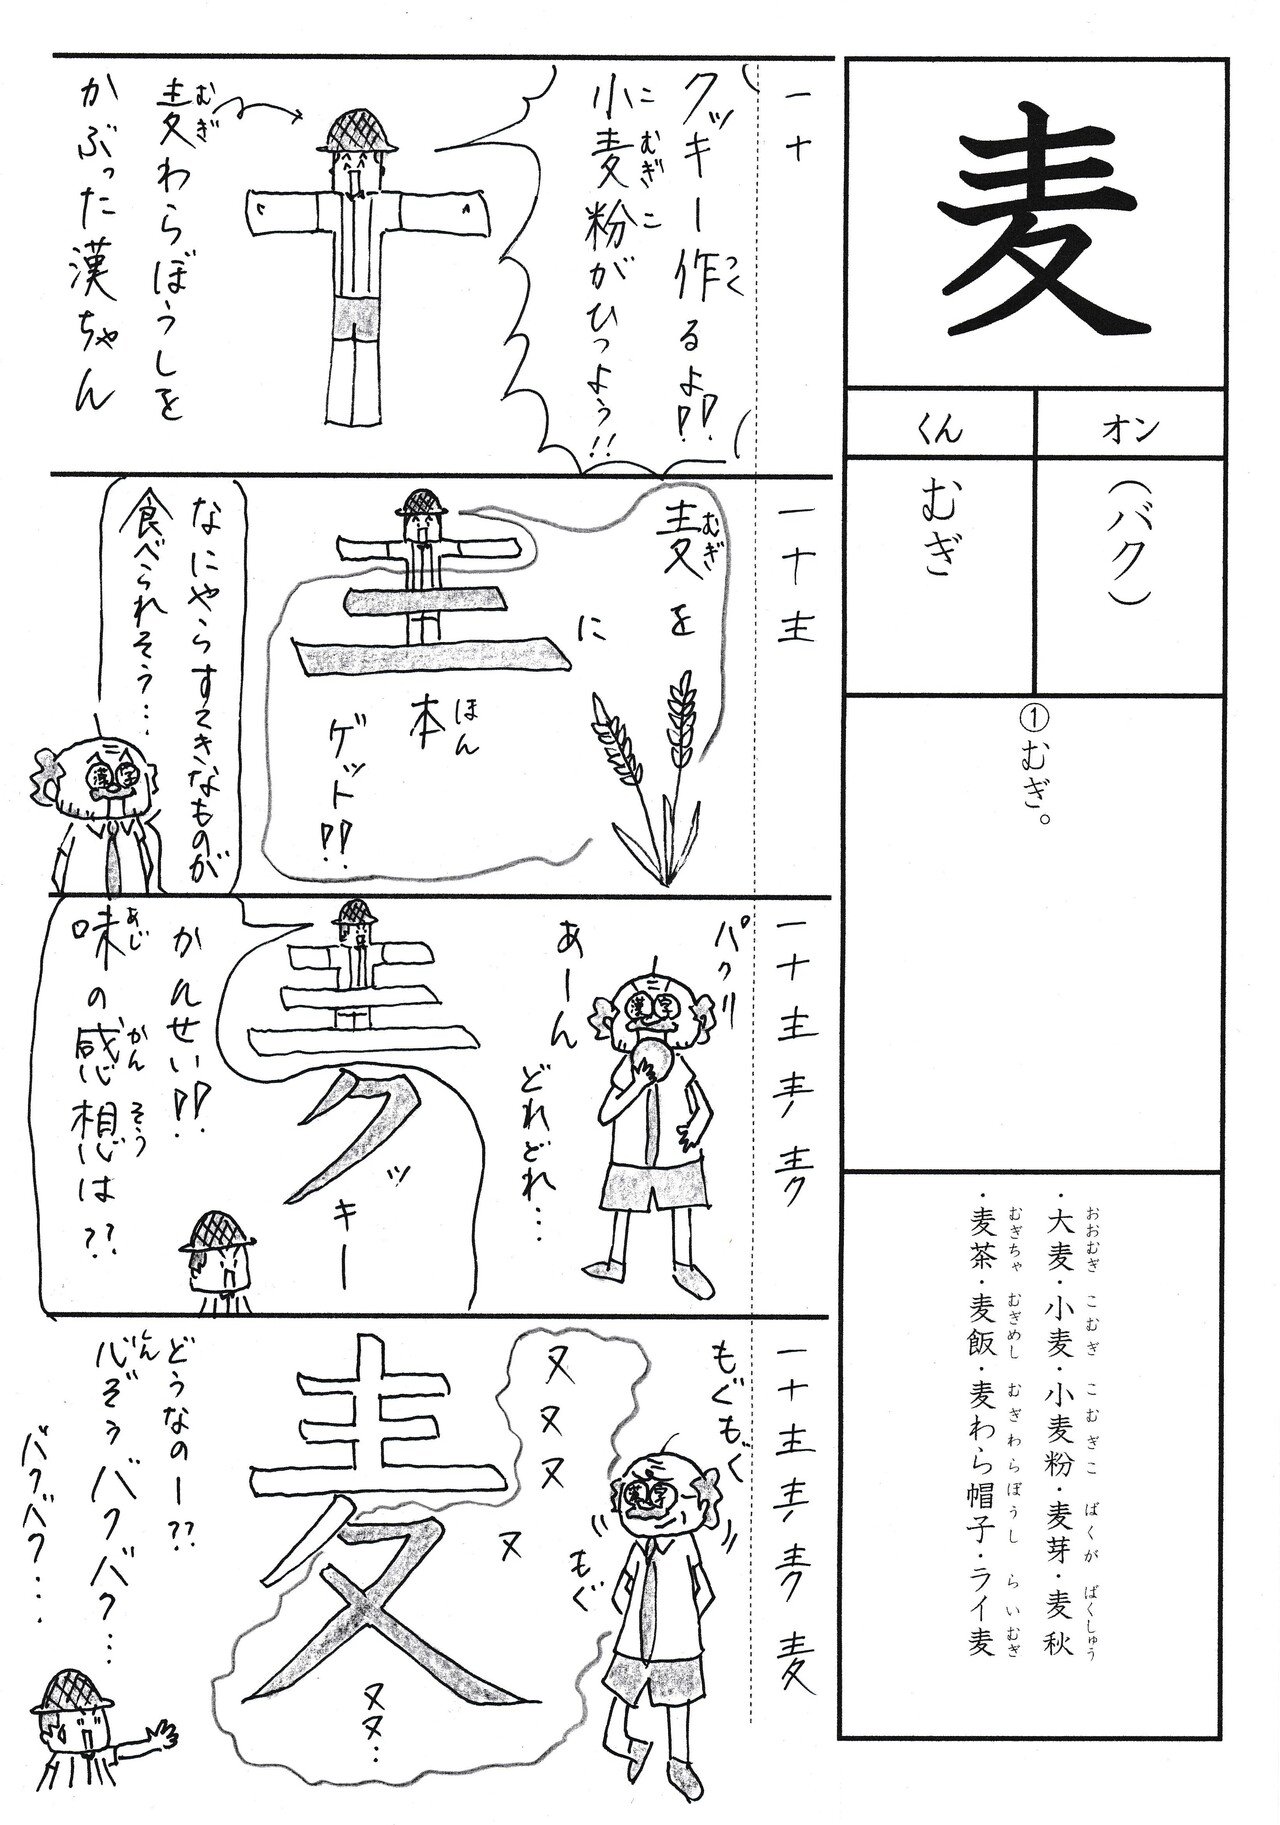 麦
オン
(バク)
くん
むぎ
①むぎ。
・大麦・小麦・小麦粉・麦芽・麦秋
おおむぎ こむぎ こむぎこ ばくが ばくしゅう
・麦茶・麦飯・麦わら帽子・ライ麦
むぎちゃ むぎめし むぎわらぼうし らいむぎ
一十
クッキー作るよ!!
つく
小麦粉がひつよう!!
こむぎこ
麦わらぼうしを
むぎ
かぶった漢ちゃん
一十主
麦を
むぎ
に
本
ほん
ゲット!!
なにやらすてきなものが
食べられそう…
漢字
一十主
パクリ
あーん
どれどれ…
漢字
クッキー
かんせい!!
味の感想は??
あじ かんそう
一十主
麦
もぐもぐ
もぐ
漢字
ヌヌヌ
ヌ
麦
ヌヌ…
どうなのー??
心ぞうバクバク…
しん
バクバク…